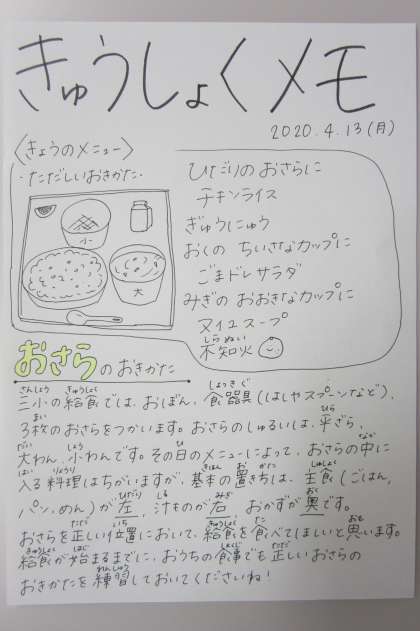 きゅうしょくメモ
2020.4.13(月)
〈きょうのメニュー〉
・ただしいおきかた・
小
大
ひだりのおさらに
チキンライス
ぎゅうにゅう
おくの ちいさなカップに
ごまドレサラダ
みぎの おおきなカップに
ヌイユスープ
しらぬい
不知火
おさらのおきかた
さんしょう きゅうしょく しょっきぐ
三小の給食では、おぼん、食器具(はしやスプーンなど)、
まい ひら
3枚のおさらをつかいます。おさらのしゅるいは、平ざら、
だい しょう ひ なか
大わん、小わんです。その日のメニューによって、おさらの中に
はい りょうり きほん お かた しゅしょく
入る料理はちがいますが、基本の置き方は、主食(ごはん、
ひだり しる みぎ おく
パン、めん)が左、汁ものが右、おかずが奥です。
ただ いち きゅうしょく た おも
おさらを正しい位置において、給食を食べてほしいと思います。
きゅうしょく はじ しょくじ ただ
給食が始まるまでに、おうちの食事でも正しいおさらの
れんしゅう
おきかたを練習しておいてくださいね!